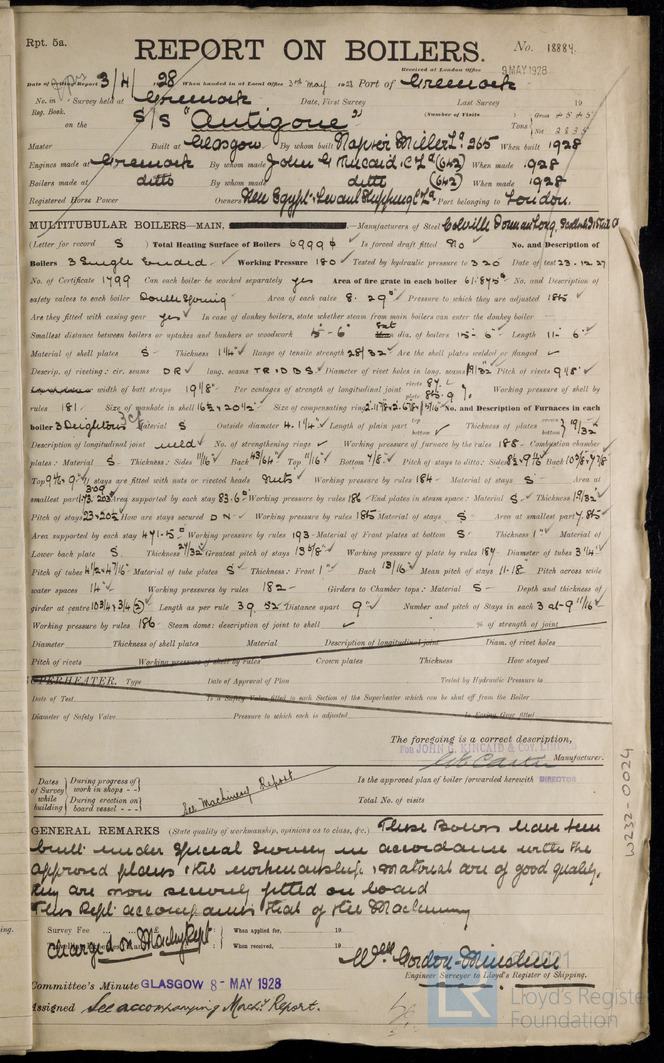 Rpt. 5a.
REPORT ON BOILERS.
No. 18884
Received at London Office
9 MAY 1928
Date of Report 3/4/1928 When handed in at Local Office 3rd May 1928 Port of Greenock
No. in Survey held at Greenock Date, First Survey Last Survey 19
Reg. Book. (Number of Visits )
on the S/S "Antigone" Tons Gross Net 2835
Master Built at Glasgow By whom built Napier Miller Ld 265 When built 1928
Engines made at Greenock By whom made John G Kincaid & Co Ld (642) When made 1928
Boilers made at ditto By whom made ditto (642) When made 1928
Registered Horse Power Owners New Egypt & Levant Shipping Co Ld Port belonging to London.
MULTITUBULAR BOILERS—MAIN, —Manufacturers of Steel Colville Dorman Long,
(Letter for record S ) Total Heating Surface of Boilers 6999 Is forced draft fitted No No. and Description of
Boilers 3 Single Ended Working Pressure 180 Tested by hydraulic pressure to 320 Date of test 23.12.27
No. of Certificate 1799 Can each boiler be worked separately yes Area of fire grate in each boiler 61.875 No. and Description of
safety valves to each boiler Double Spring Area of each valve 8.29 Pressure to which they are adjusted 185
Are they fitted with easing gear yes In case of donkey boilers, state whether steam from main boilers can enter the donkey boiler
Smallest distance between boilers or uptakes and bunkers or woodwork 15-6 dia. of boilers 15-6 Length 11-6
Material of shell plates S Thickness 1 1/4 Range of tensile strength 28/32 Are the shell plates welded or flanged
Descrip. of riveting: cir. seams DR long. seams TR.DBS Diameter of rivet holes in long. seams 1 9/32 Pitch of rivets 9 1/8
width of butt straps 19 1/8 Per centages of strength of longitudinal joint rivets 87. plate 85.9 Working pressure of shell by
rules 181 Size of manhole in shell 16 1/2 x 20 1/2 Size of compensating ring No. and Description of Furnaces in each
boiler 3 Deightons Material S Outside diameter 4.1 1/4 Length of plain part top bottom Thickness of plates crown bottom 19/32
Description of longitudinal joint weld No. of strengthening rings Working pressure of furnace by the rules 188 Combustion chamber
plates: Material S Thickness: Sides 11/16 Back 43/64 Top 11/16 Bottom 7/8 Pitch of stays to ditto: Sides Back
Top If stays are fitted with nuts or riveted heads Nuts Working pressure by rules 184 Material of stays S Area at
smallest part Area supported by each stay 83.6 Working pressure by rules 186 End plates in steam space: Material S Thickness 19/32
Pitch of stays How are stays secured DN Working pressure by rules 185 Material of stays S Area at smallest part 7.865
Area supported by each stay 471.5 Working pressure by rules 193 Material of Front plates at bottom S Thickness 1" Material of
Lower back plate S Thickness 27/32 Greatest pitch of stays 13 5/8 Working pressure of plate by rules 187 Diameter of tubes 3 1/4
Pitch of tubes 4 1/2 x 4 7/16 Material of tube plates S Thickness: Front 1" Back 13/16 Mean pitch of stays 11.18 Pitch across wide
water spaces 14 Working pressures by rules 182 Girders to Chamber tops: Material S Depth and thickness of
girder at centre 10 3/4 x 3/4 (2) Length as per rule 39.52 Distance apart 9" Number and pitch of Stays in each 3 at 9 11/16
Working pressure by rules 186 Steam dome: description of joint to shell % of strength of joint
Diameter Thickness of shell plates Material Description of longitudinal joint Diam. of rivet holes
Pitch of rivets Working pressure of shell by rules Crown plates Thickness How stayed
SUPERHEATER. Type Date of Approval of Plan Tested by Hydraulic Pressure to
Date of Test Is a Safety Valve fitted to each Section of the Superheater which can be shut off from the Boiler
Diameter of Safety Valve Pressure to which each is adjusted Is Easing Gear fitted
The foregoing is a correct description,
For JOHN G. KINCAID & COY. LIMITED
Manufacturer.
DIRECTOR
Dates of Survey while building
During progress of work in shops - -
During erection on board vessel - - -
See Machinery Report
Is the approved plan of boiler forwarded herewith
Total No. of visits
W232-0024
GENERAL REMARKS (State quality of workmanship, opinions as to class, &c.) These Boilers have been
built under Special Survey in accordance with the
approved plans & the workmanship & material are of good quality.
they are now securely fitted on board
This Rept accompanies that of the Machinery
Survey Fee ... £ When applied for, 19
Charged on Machy Rept When received, 19
Wm Gordon-
Engineer Surveyor to Lloyd's Register of Shipping.
Committee's Minute GLASGOW 8 - MAY 1928
Assigned See accompanying Machy. Report.
LR
Lloyd's Register
Foundation